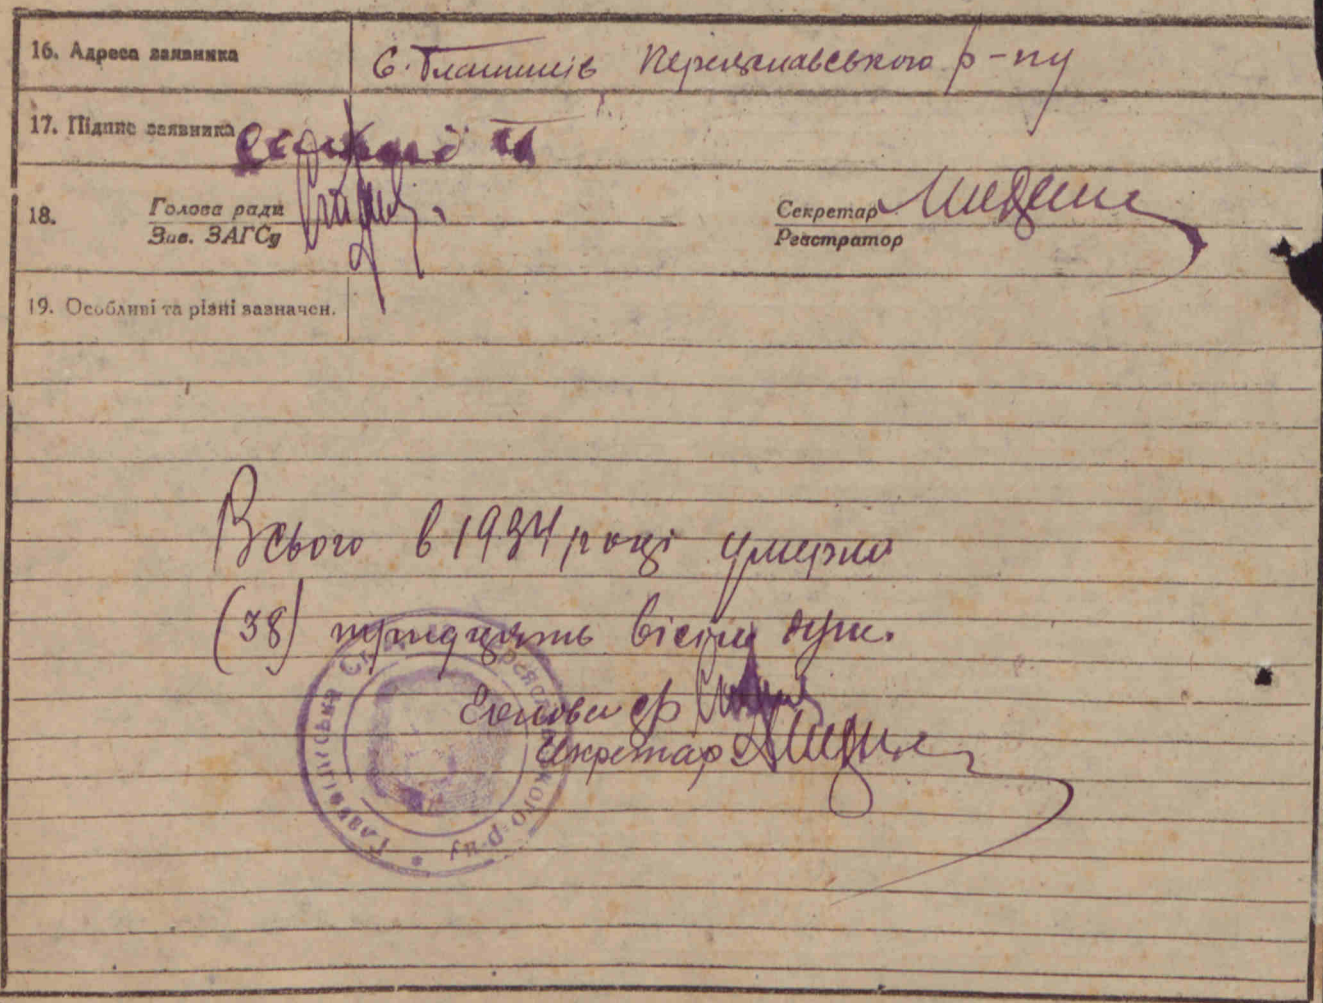 16. Адреса заявника
с. Гланишів Переяславського р-ну
17. Підпис заявника
18. Голова ради
Зав. ЗАГСу
Секретар
Реєстратор
19. Особливі та різні зазначен.
Всього в 1934 році умерло
(38) тридцять вісім душ.
Голова с/р
Секретар